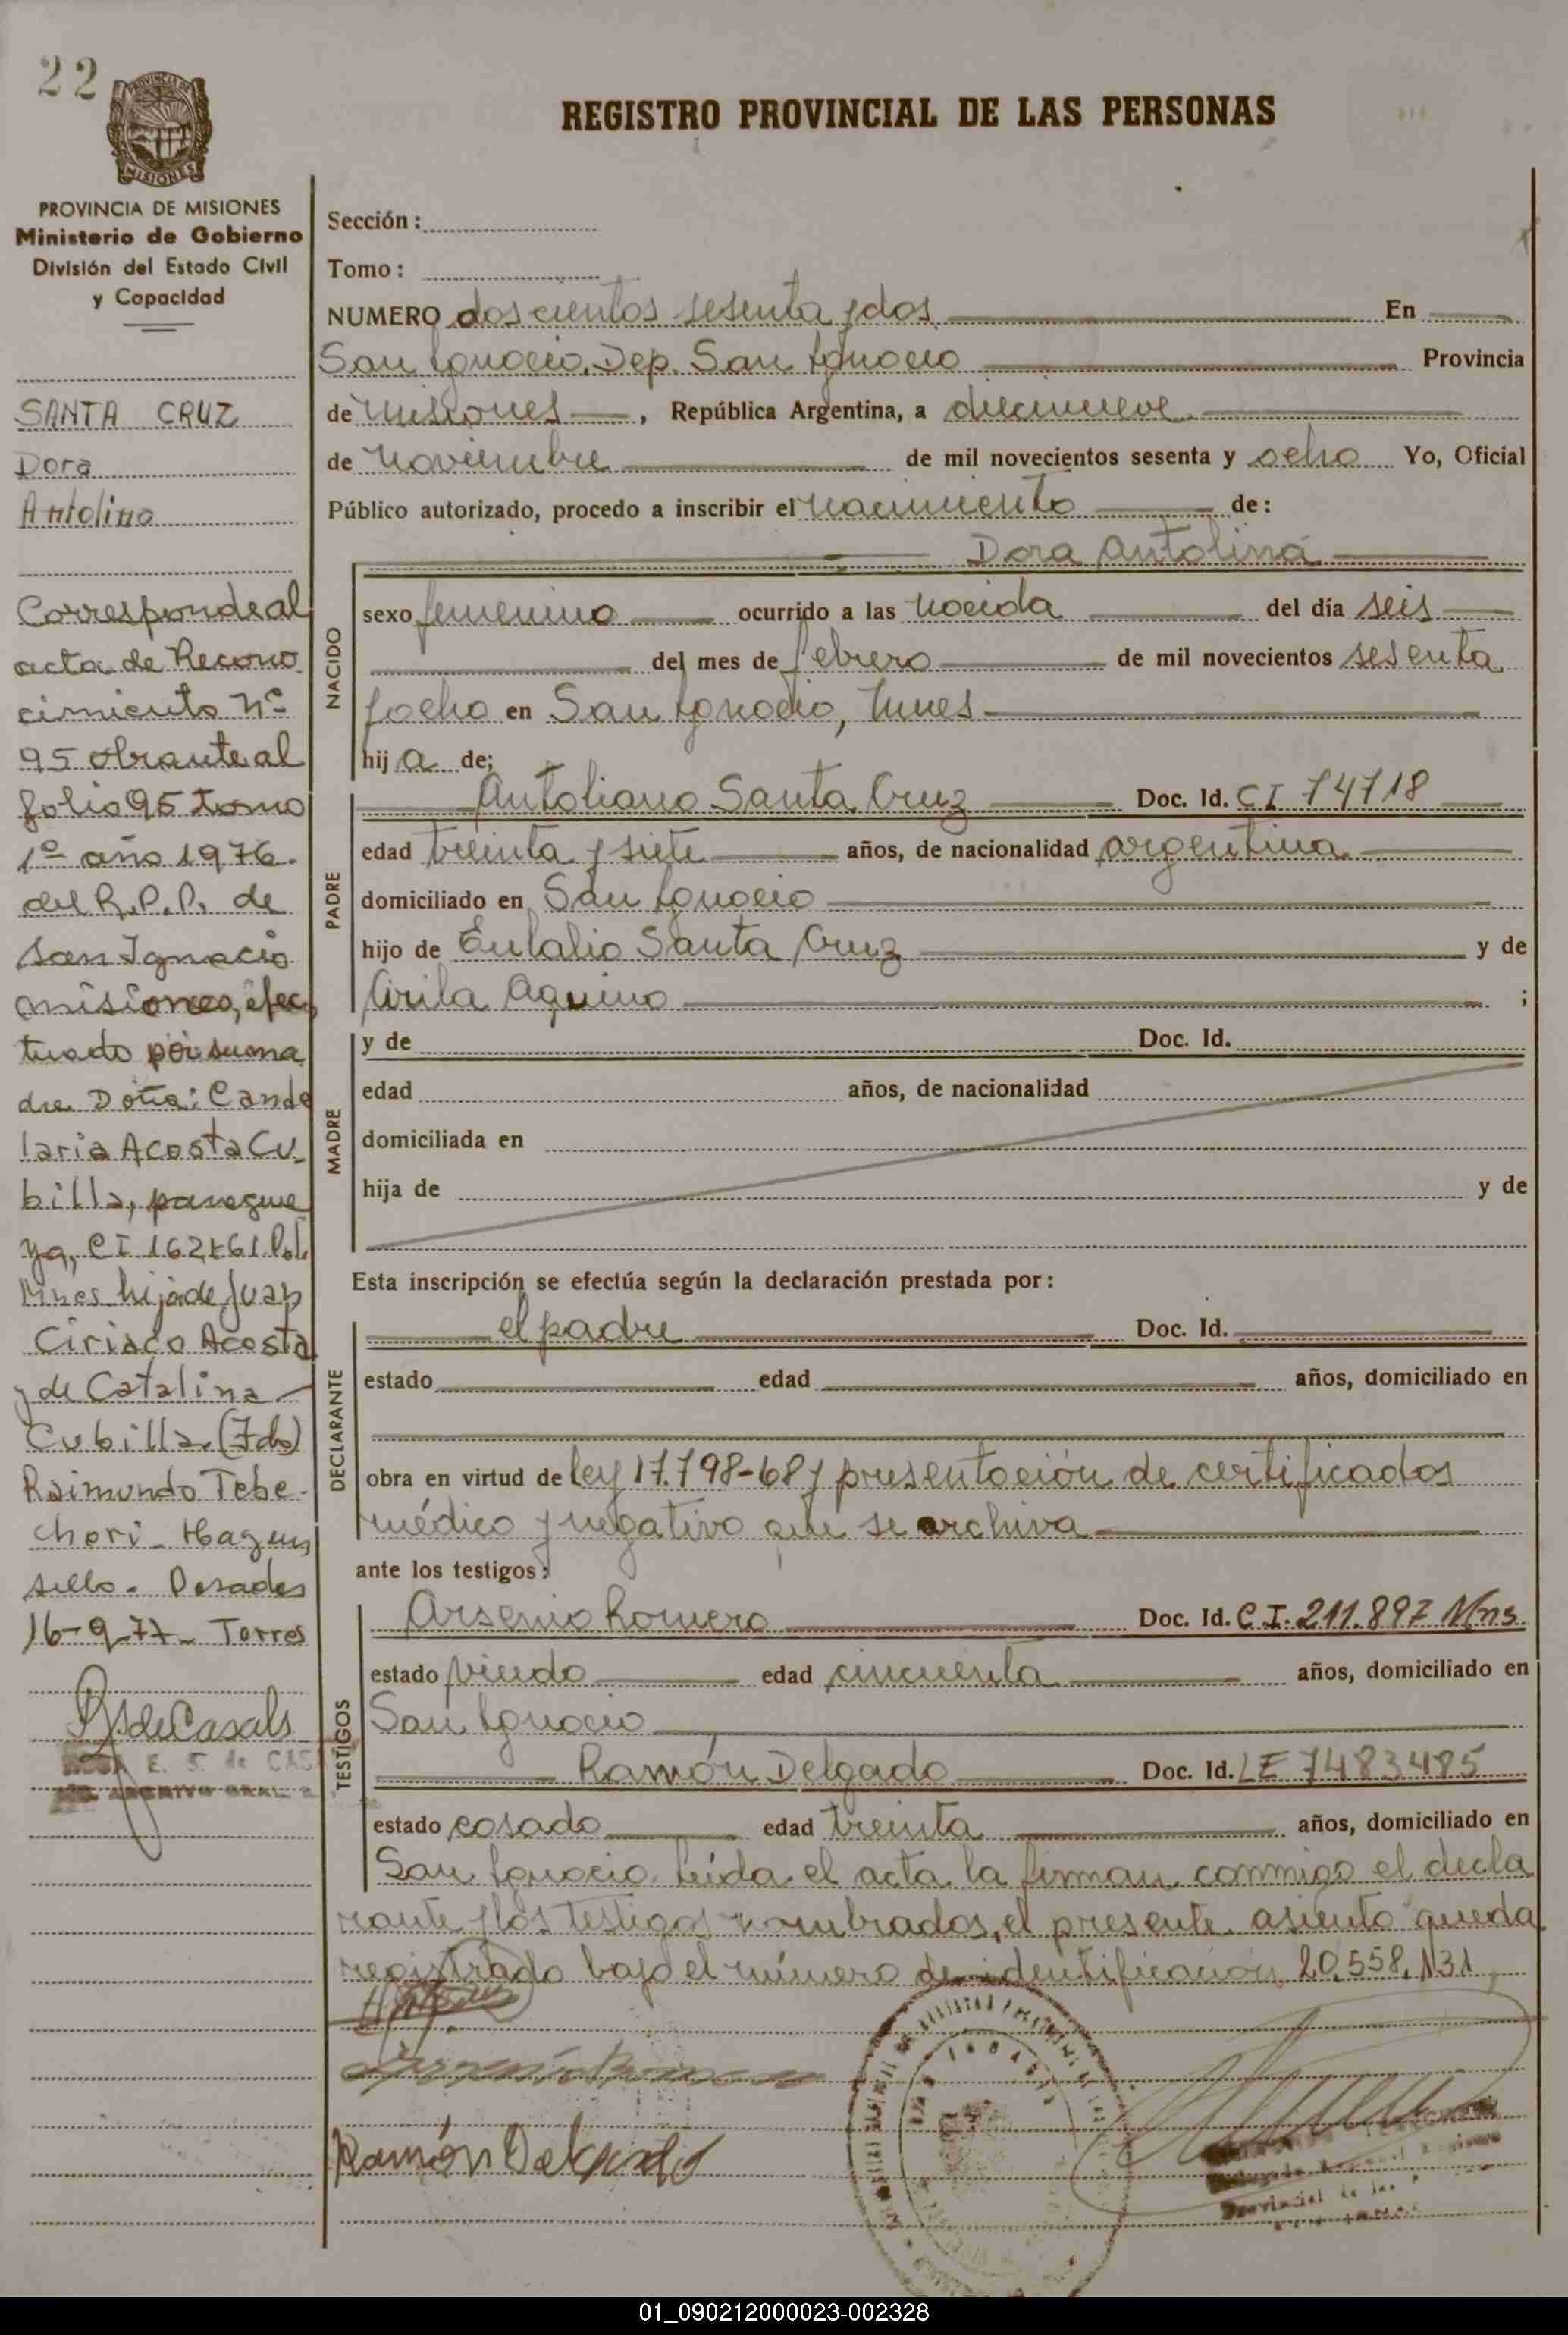 22
PROVINCIA DE MISIONES
Ministerio de Gobierno
División del Estado Civil
y Capacidad
SANTA CRUZ
Dora
Antolina
Corresponde al
acta de Recono
cimiento Nº
95 obrante al
folio 95 tomo
1º año 1976.
del R.P.P. de
San Ignacio
misiones, efec
tuado por su ma
dre Doña: Cande
laria Acosta Cu-
billa, paragua
ya, CI Pol.
Mnes hija de Juan
Ciriaco Acosta
y de Catalina
Cubilla. (Fdo)
Raimundo Tebe-
chori - Hay un
sello. Posadas
16-9-77- Torres
REGISTRO PROVINCIAL DE LAS PERSONAS
Sección:
Tomo:
NUMERO doscientos sesenta y dos En
San Ignacio, Dep. San Ignacio Provincia
de Misiones, República Argentina, a diecinueve
de noviembre de mil novecientos sesenta y ocho Yo, Oficial
Público autorizado, procedo a inscribir el nacimiento de:
Dora Antolina
NACIDO
sexo femenino ocurrido a las nacida del día seis
del mes de febrero de mil novecientos sesenta
y ocho en San Ignacio, Mnes
hija de;
PADRE
Antoliano Santa Cruz Doc. Id. CI 74718
edad treinta y siete años, de nacionalidad argentina
domiciliado en San Ignacio
hijo de Eulalio Santa Cruz y de
Cirila Aquino ;
MADRE
y de Doc. Id.
edad años, de nacionalidad
domiciliada en
hija de y de
Esta inscripción se efectúa según la declaración prestada por:
DECLARANTE
el padre Doc. Id.
estado edad años, domiciliado en
obra en virtud de ley 17.798-68 y presentación de certificados
médico y negativo que se archiva
ante los testigos:
TESTIGOS
Arsenio Romero Doc. Id. C.I. 211.897 Mns.
estado viudo edad cincuenta años, domiciliado en
San Ignacio
Ramón Delgado Doc. Id. LE 7483485
estado casado edad treinta años, domiciliado en
San Ignacio. Leída el acta la firman conmigo el decla
rante y los testigos nombrados, el presente asiento queda
registrado bajo el número de identificación 20.558.131
Ramón Delgado
01_090212000023-002328